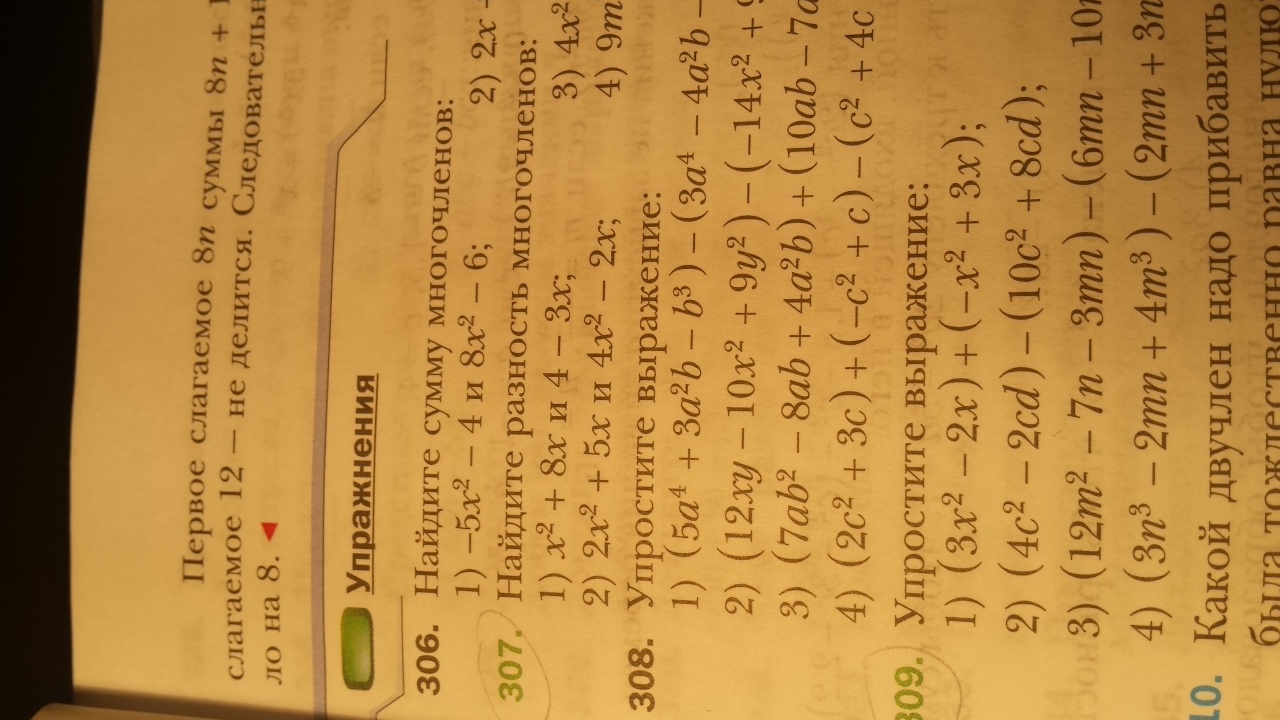 Первое слагаемое 8n суммы 8n + 1
слагаемое 12 — не делится.
ло на 8. ◄
Упражнения
306. Найдите сумму многочленов:
1) −5x² − 4 и 8x² − 6; 2) 2x
307. Найдите разность многочленов:
1) x² + 8x и 4 − 3x; 3) 4x²
2) 2x² + 5x и 4x² − 2x; 4) 9m
308. Упростите выражение:
1) (5a⁴ + 3a²b − b³) − (3a⁴ − 4a²b −
2) (12xy − 10x² + 9y²) − (−14x² +
3) (7ab² − 8ab + 4a²b) + (10ab − 7a
4) (2c² + 3c) + (−c² + c) − (c² + 4c
309. Упростите выражение:
1) (3x² − 2x) + (−x² + 3x);
2) (4c² − 2cd) − (10c² + 8cd);
3) (12m² − 7n − 3mn) − (6mn − 10
4) (3n³ − 2mn + 4m³) − (2mn + 3n
10. Какой двучлен надо прибавить
была тождественно равна